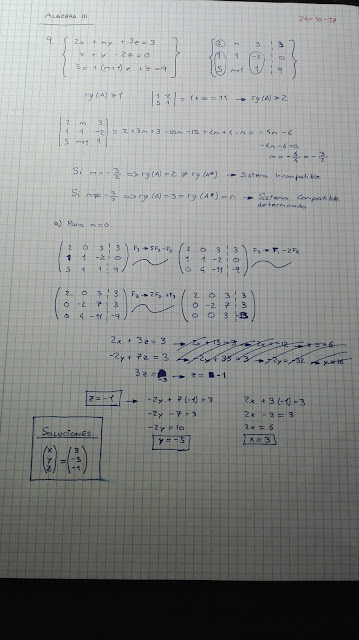 ALGEBRA III 24-10-17
9. { 2x + my + 3z = 3
x + y - 2z = 0
5x + (m+1)y + z = 9
( 2 m 3 | 3
1 1 -2 | 0
5 m+1 1 | 9 )
rg(A) ≥ 1 | 1 -2
5 1 | = 1+10 = 11 → rg(A) ≥ 2
| 2 m 3
1 1 -2
5 m+1 1 | = 2+3m+3-10m-15+4m+4-m = -4m-6
-4m-6=0
m = -6/4 = -3/2
Si m = -3/2 => rg(A) = 2 ≠ rg(A*) → Sistema Incompatible
Si m ≠ -3/2 => rg(A) = 3 = rg(A*) = n → Sistema Compatible determinado
a) Para m=0
( 2 0 3 | 3
1 1 -2 | 0
5 1 1 | 9 ) F3 → 5F2-F3 ( 2 0 3 | 3
1 1 -2 | 0
0 4 -11 | -9 ) F2 → F1-2F2
( 2 0 3 | 3
0 -2 7 | 3
0 4 -11 | -9 ) F3 → 2F2+F3 ( 2 0 3 | 3
0 -2 7 | 3
0 0 3 | -3 )
2x + 3z = 3
-2y + 7z = 3
3z = -3 → z = -1
z = -1 → -2y + 7(-1) = 3 2x + 3(-1) = 3
-2y - 7 = 3 2x - 3 = 3
-2y = 10 2x = 6
y = -5 x = 3
SOLUCIONES
( x
y
z ) = ( 3
-5
-1 )